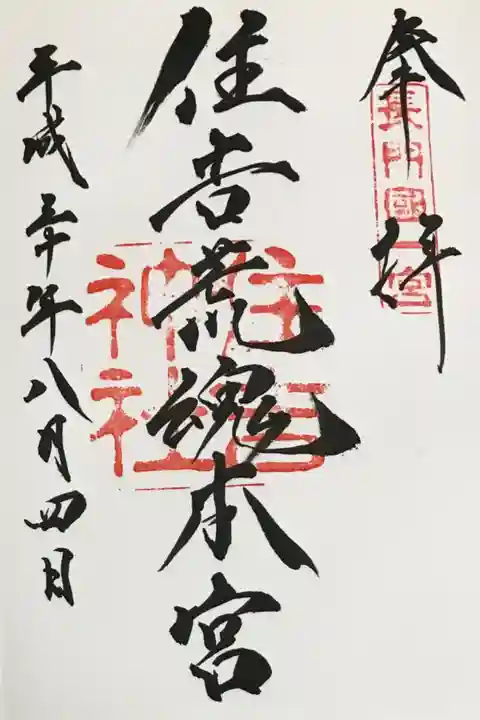 奉拝
長門國一宮
住吉荒魂本宮
住吉
神社
平成三十年八月四日